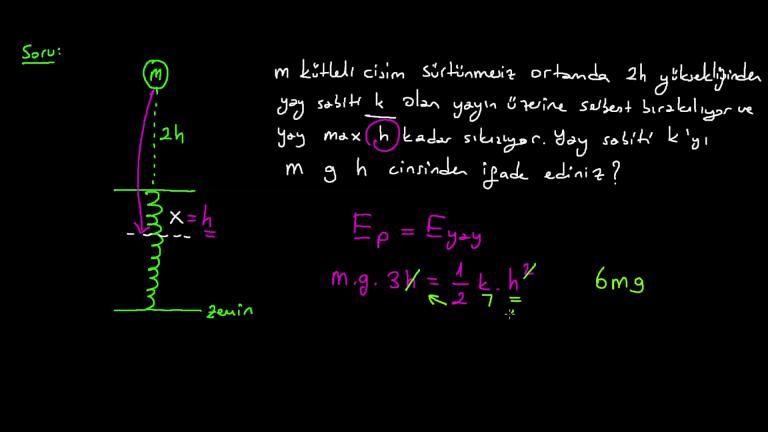 Soru:
m kütleli cisim sürtünmesiz ortamda 2h yüksekliğinden
yay sabiti k olan yayın üzerine serbest bırakılıyor ve
yay max h kadar sıkışıyor. Yay sabiti k'yı
m g h cinsinden ifade ediniz?
m
2h
x = h
zemin
Ep = Eyay
m.g. 3h = 1/2 k. h²
6mg